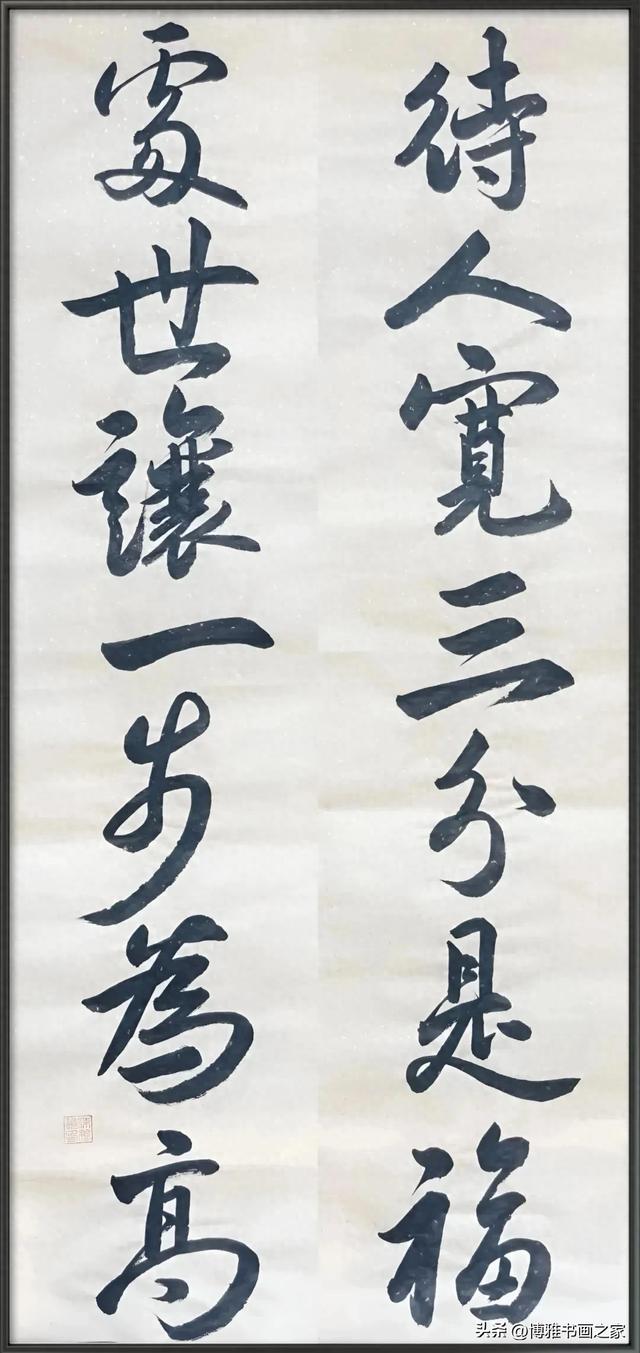 待人寬三分是福
處世讓一步為高
头条 @博雅书画之家